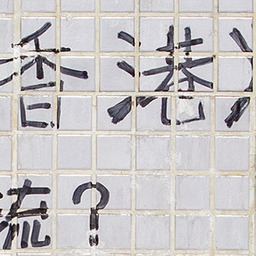 香港
流?